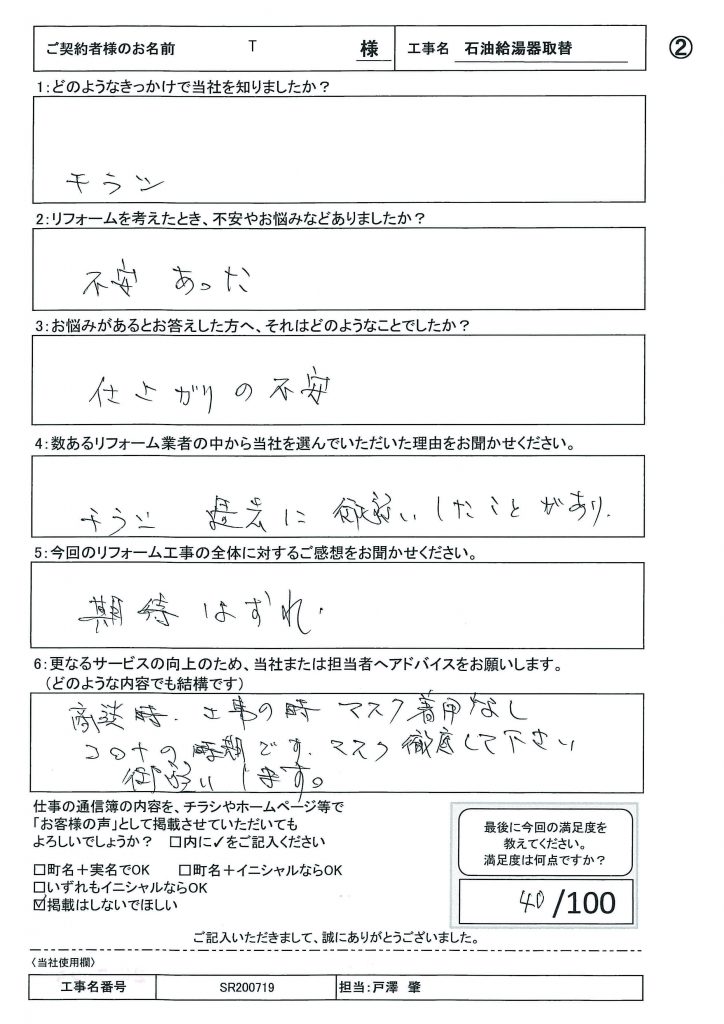 ご契約者様のお名前 T 様 工事名 石油給湯器取替 ②
1:どのようなきっかけで当社を知りましたか?
チラシ
2:リフォームを考えたとき、不安やお悩みなどありましたか?
不安 あった
3:お悩みがあるとお答えした方へ、それはどのようなことでしたか?
仕上がりの不安
4:数あるリフォーム業者の中から当社を選んでいただいた理由をお聞かせください。
チラシ 過去に御願いしたことがあり.
5:今回のリフォーム工事の全体に対するご感想をお聞かせください。
期待はずれ.
6:更なるサービスの向上のため、当社または担当者へアドバイスをお願いします。
(どのような内容でも結構です)
商談時. 工事の時 マスク着用なし
コロナの時期です. マスク徹底して下さい
御願いします。
仕事の通信簿の内容を、チラシやホームページ等で
「お客様の声」として掲載させていただいても
よろしいでしょうか? □内に✓をご記入ください
□町名+実名でOK □町名+イニシャルならOK
□いずれもイニシャルならOK
☑掲載はしないでほしい
最後に今回の満足度を
教えてください。
満足度は何点ですか?
40/100
ご記入いただきまして、誠にありがとうございました。
〈当社使用欄〉
工事名番号 SR200719 担当:戸澤 肇